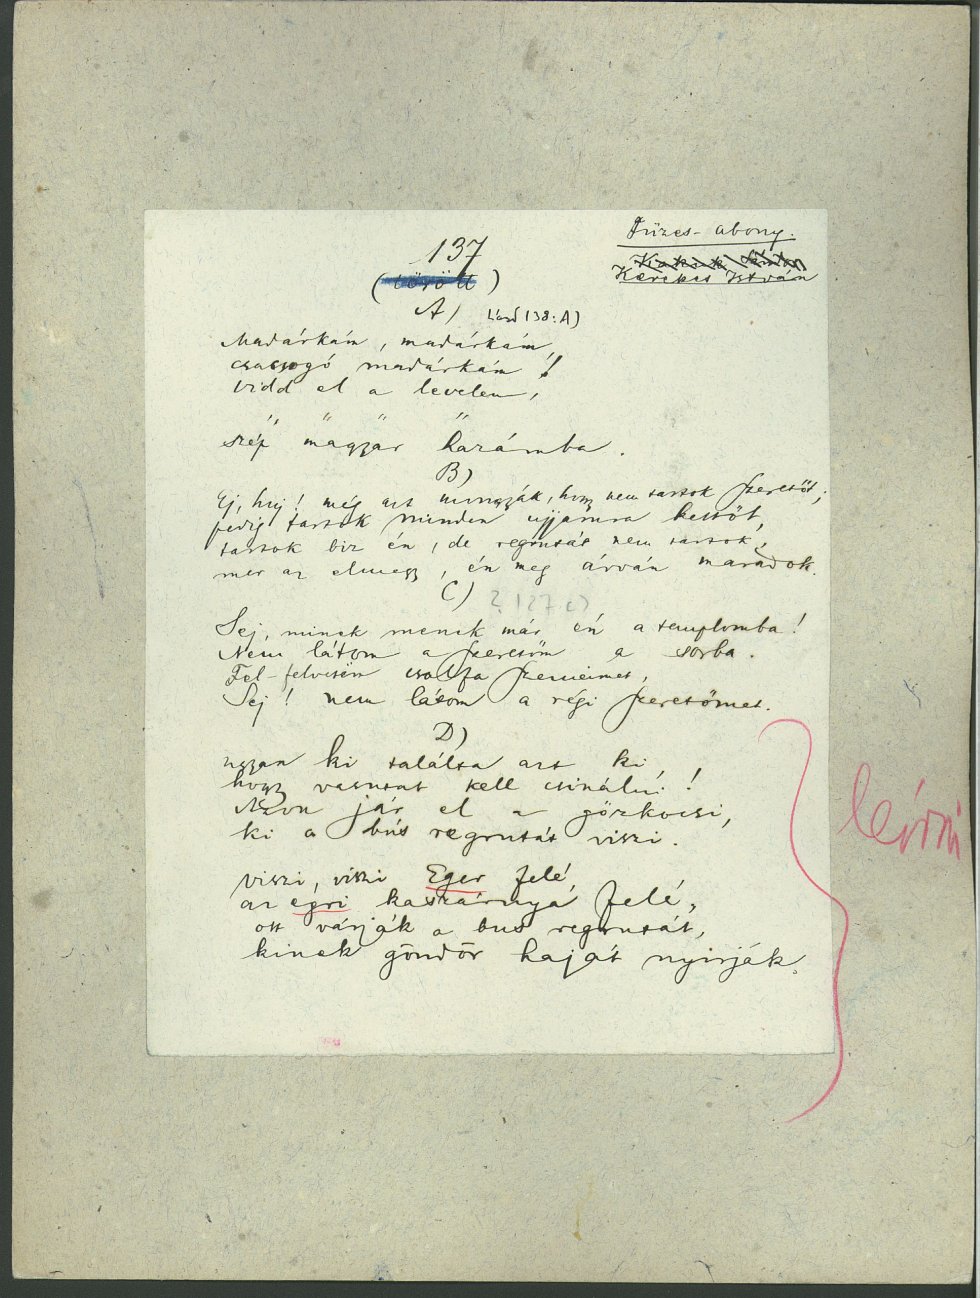 Füzes-abony.
137
Kerekes István
(törölt)
A) lásd 138: A)
Madárkám, madárkám,
csacsogó madárkám!
vidd el a levelem,
" " " "
szép magyar hazámba.
B)
Ej, haj! még azt mongyák, hogy nem tartok szeretőt;
pedig tartok minden ujjamra kettőt,
tartok biz én, de regrutát nem tartok,
mer az elmegy, én meg árván maradok.
C) ? 127 c)
Sej, minek menek már én a templomba!
Nem látom a szeretőm a sorba.
Fel-felvetëm csalfa szemeimet,
Sej! nem látom a régi szeretőmet.
D)
ugyan ki találta azt ki,
hogy vasutat kell csinálni!
Azon jár el a gőzkocsi,
ki a bús regrutát viszi.
viszi, viszi Eger felé
az egri kaszárnya felé,
ott várják a bus regrutát,
kinek göndör haját nyirják.
leírni